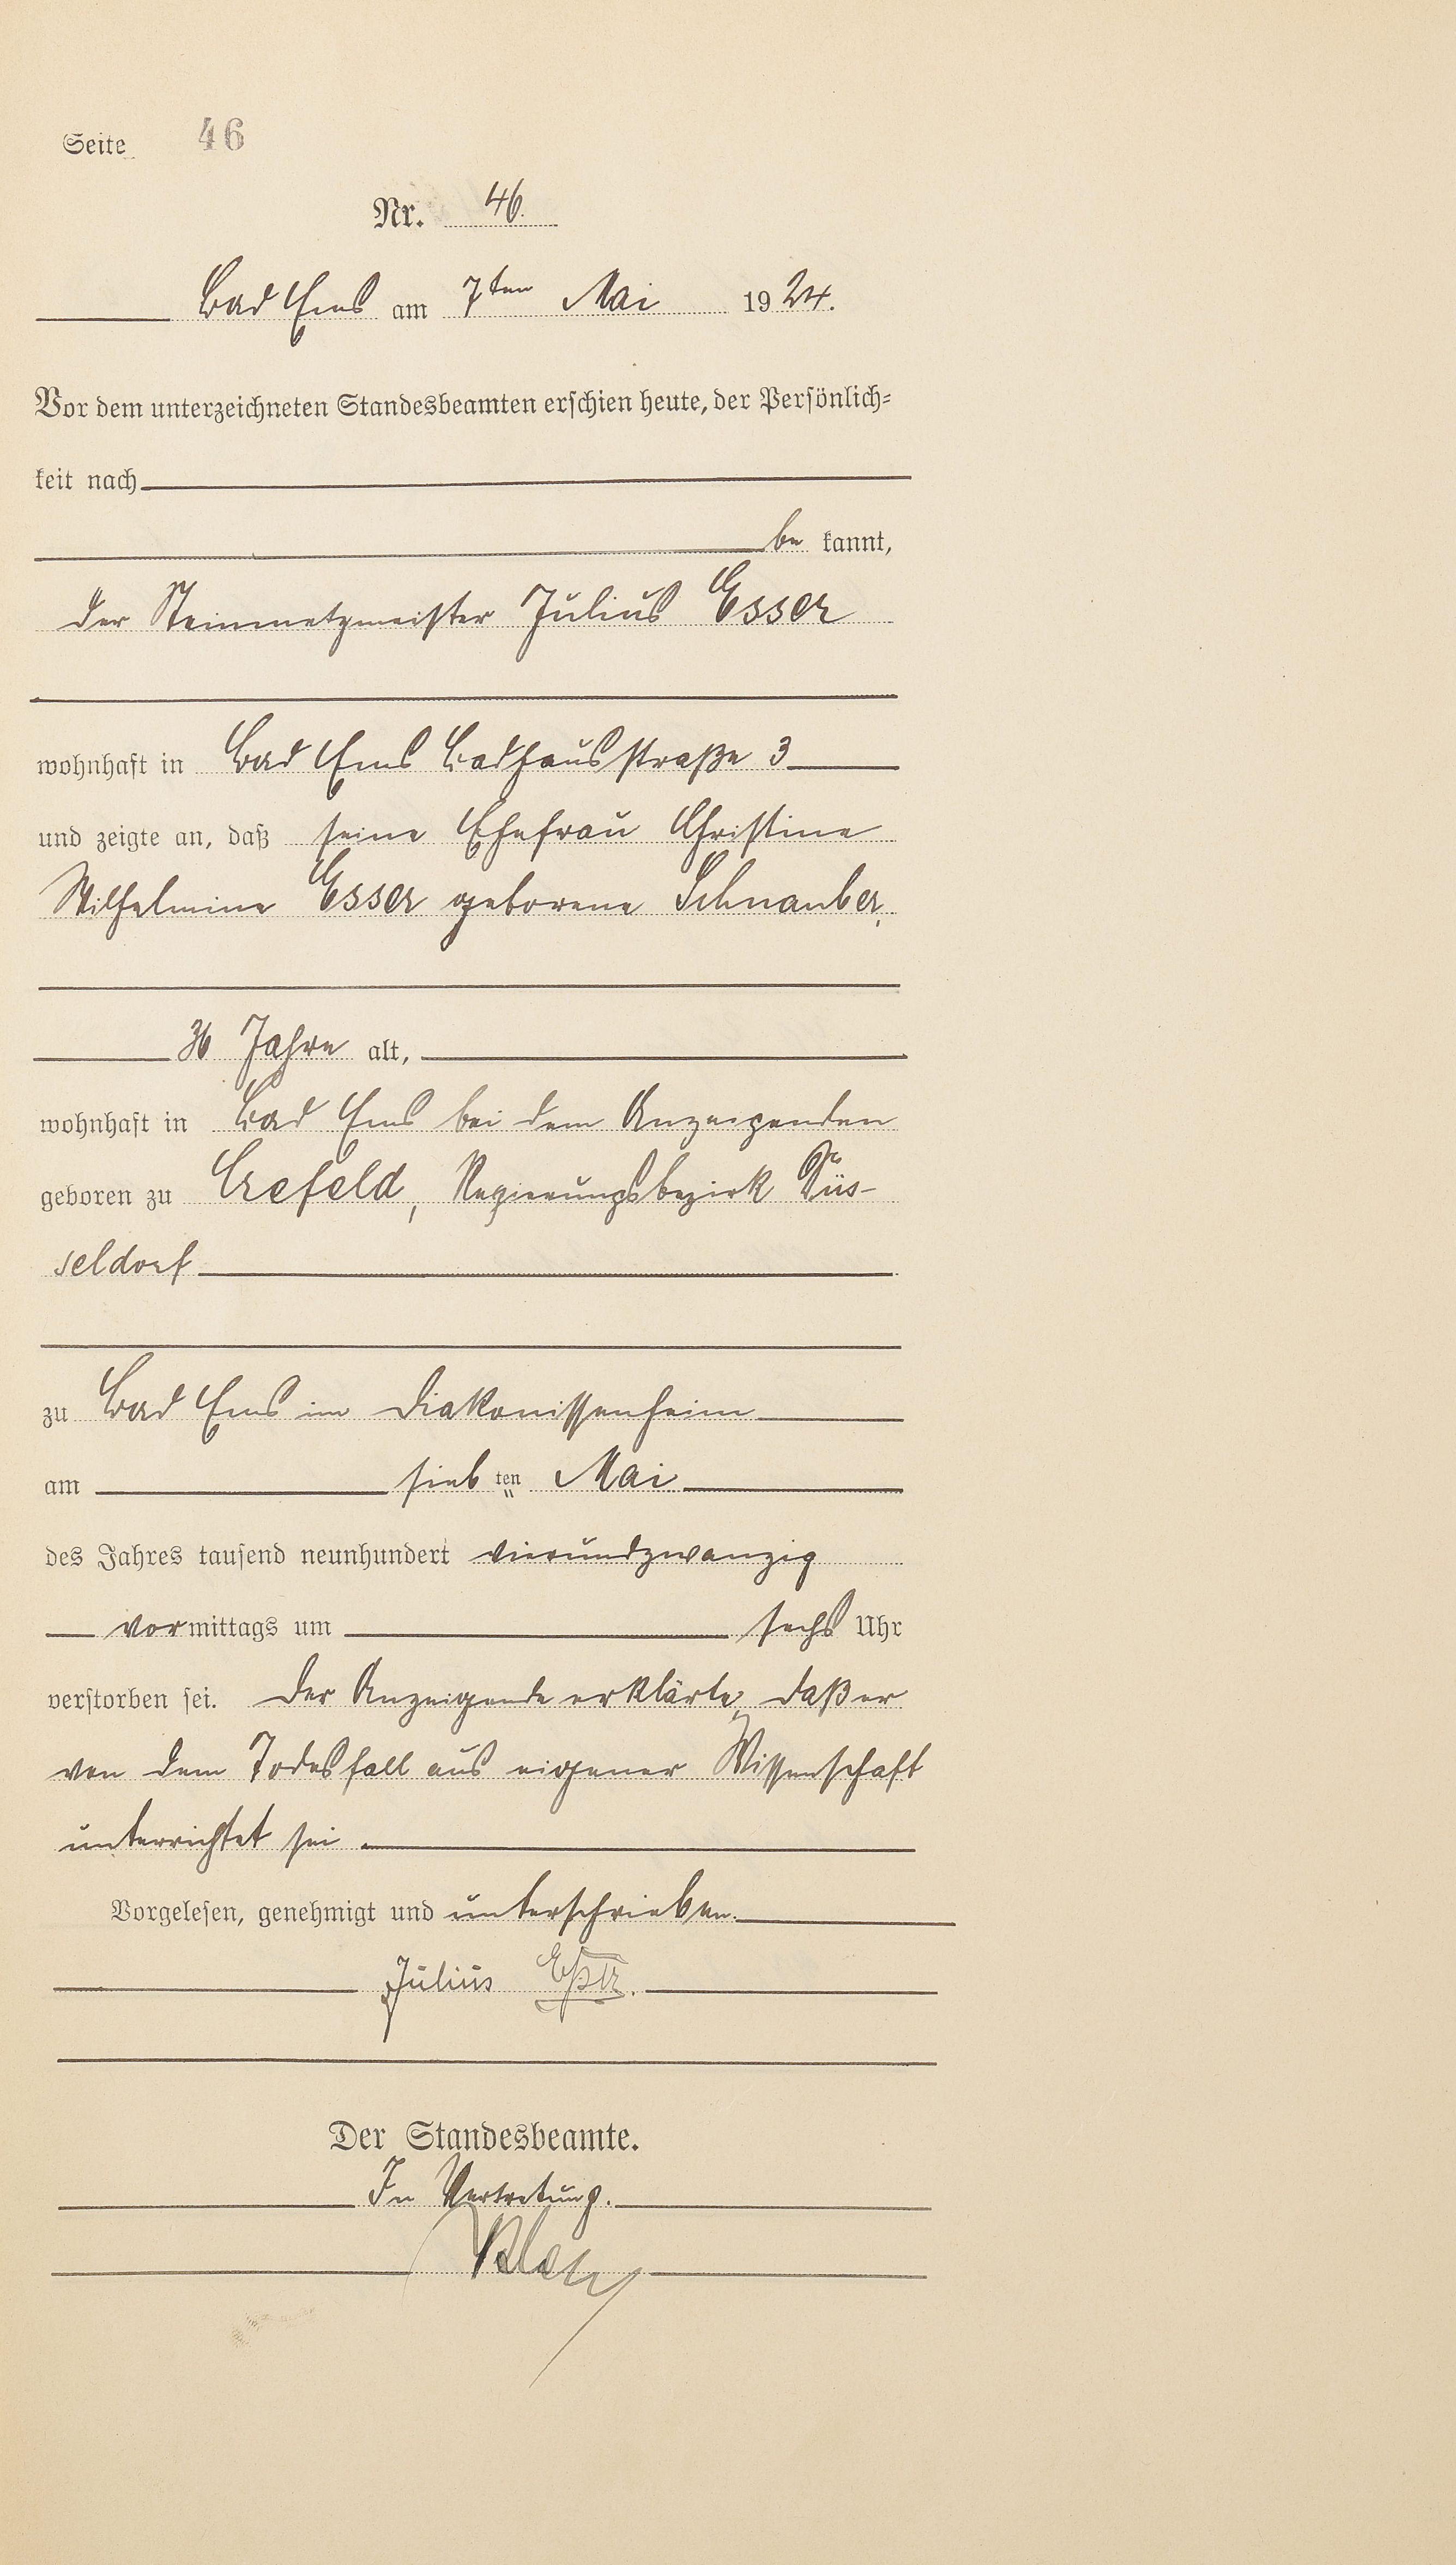 Seite 46
Nr. 46.
Bad Ems am 7ten Mai 1924.
Vor dem unterzeichneten Standesbeamten erschien heute, der Persönlich-
keit nach
be kannt,
der Steinmetzmeister Julius Esser
wohnhaft in Bad Ems Badhausstraße 3
und zeigte an, daß seine Ehefrau Christine
Wilhelmine Esser geborene Schnauber,
36 Jahre alt,
wohnhaft in Bad Ems bei dem Anzeigenden
geboren zu Crefeld, Regierungsbezirk Düs-
seldorf
zu Bad Ems im Diakonissenheim
am siebten Mai
des Jahres tausend neunhundert vierundzwanzig
vormittags um sechs Uhr
verstorben sei. Der Anzeigende erklärte, daß er
von dem Todesfall aus eigener Wissenschaft
unterrichtet sei.
Vorgelesen, genehmigt und unterschrieben.
Julius Esser.
Der Standesbeamte.
In Vertretung.